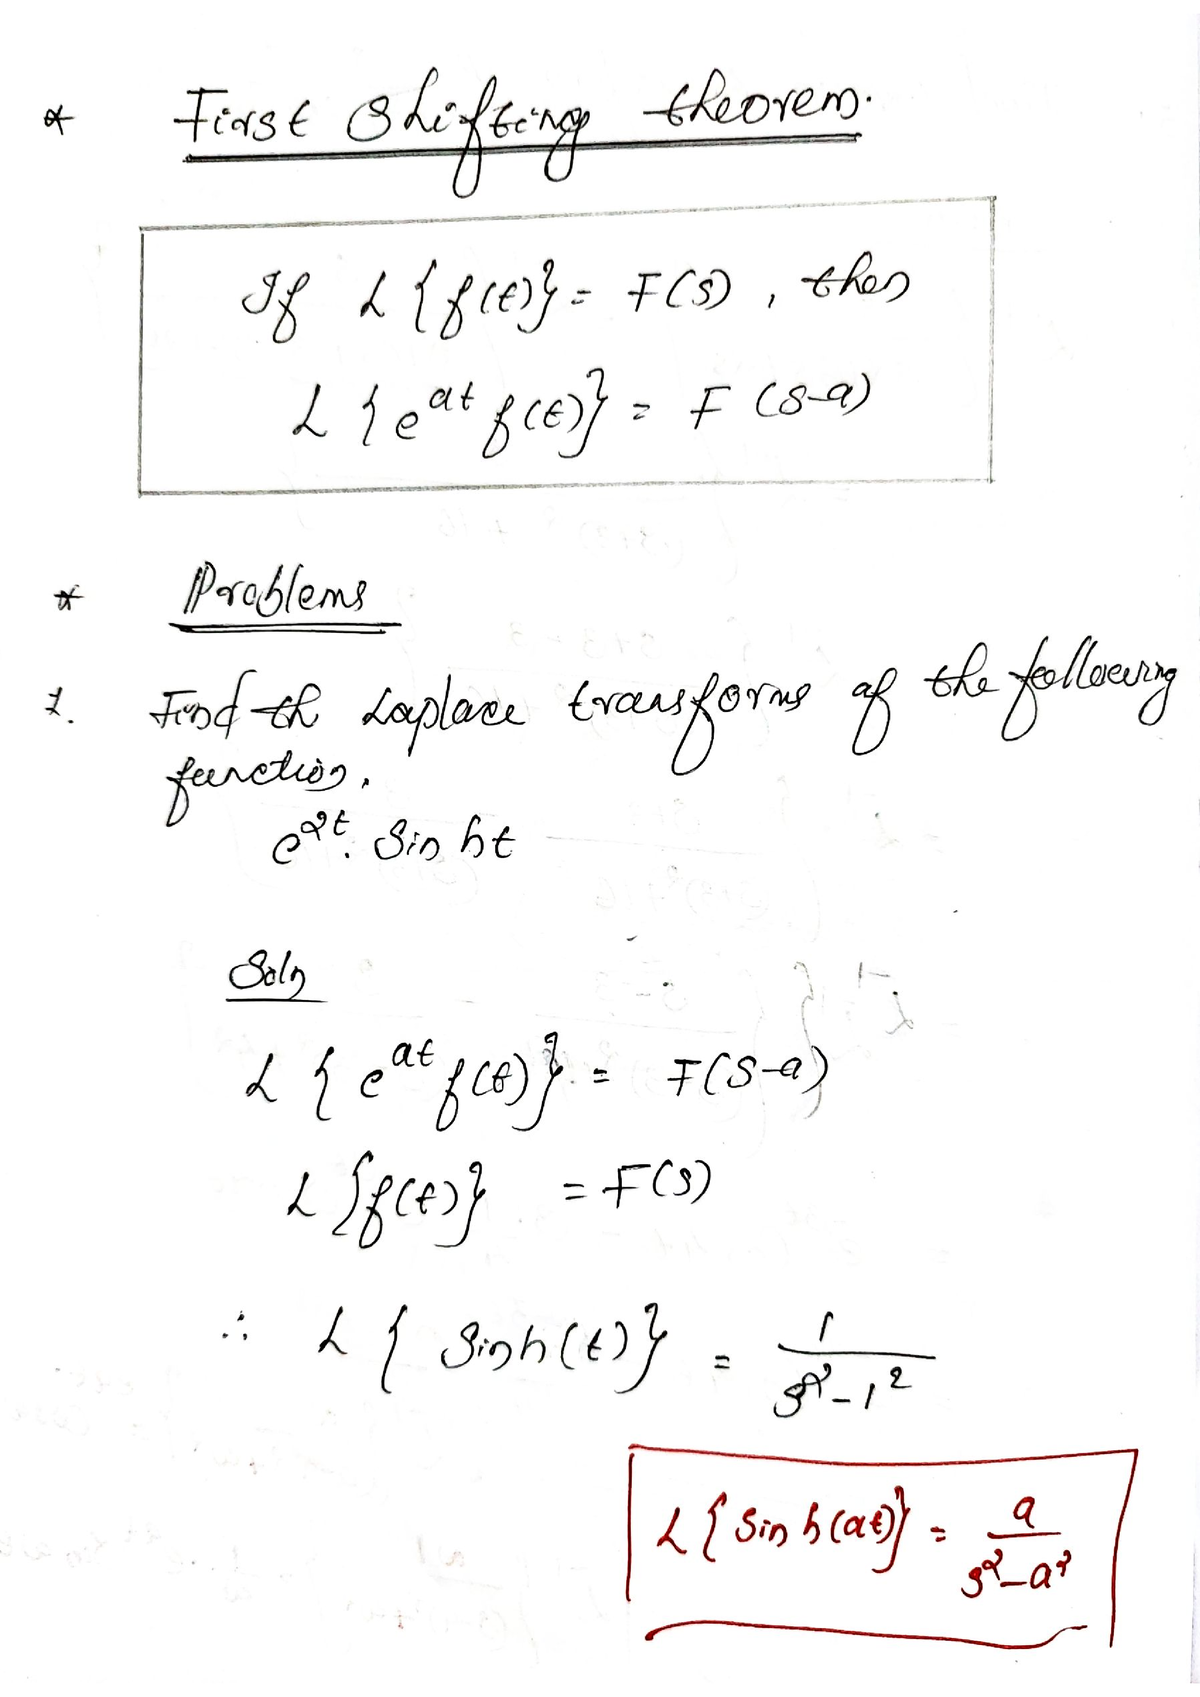 * First Shifting theorem.
If L{f(t)} = F(s), then
L{e^{at} f(t)} = F(s-a)
* Problems
1. Find th Laplace transforms of the following
function.
e^{2t}. Sin ht
Soln
L{e^{at} f(t)} = F(s-a)
L{f(t)} = F(s)
∴ L{Sinh(t)} = 1/(s²-1²)
L{Sin h(at)} = a/(s²-a²)